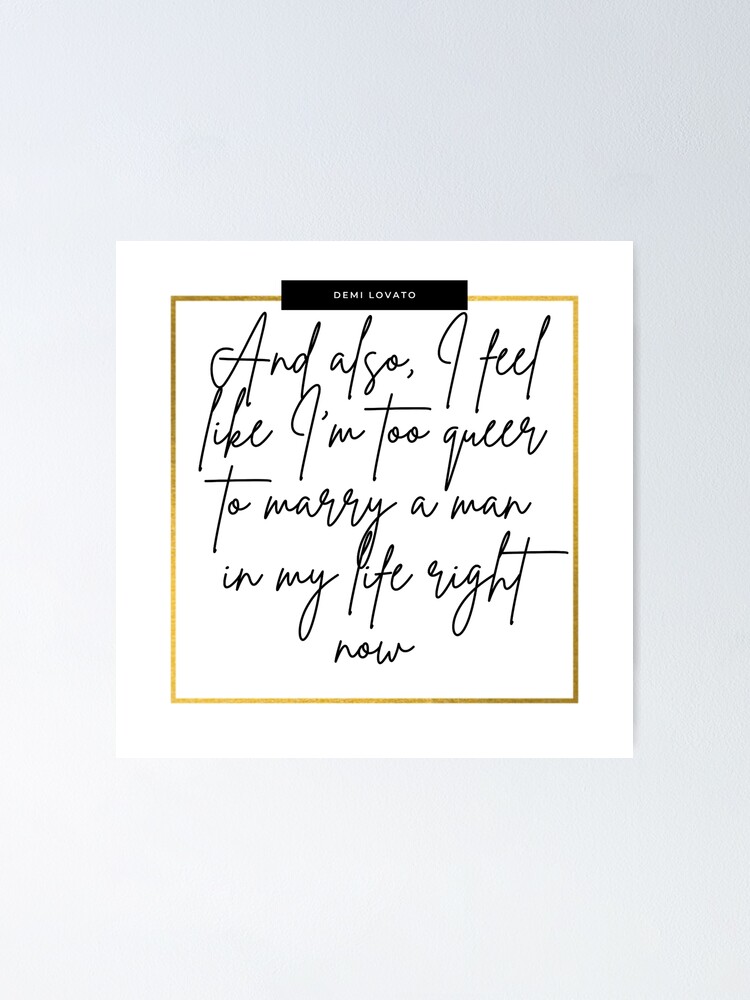 DEMI LOVATO
And also, I feel
like I'm too queer
to marry a man
in my life right
now